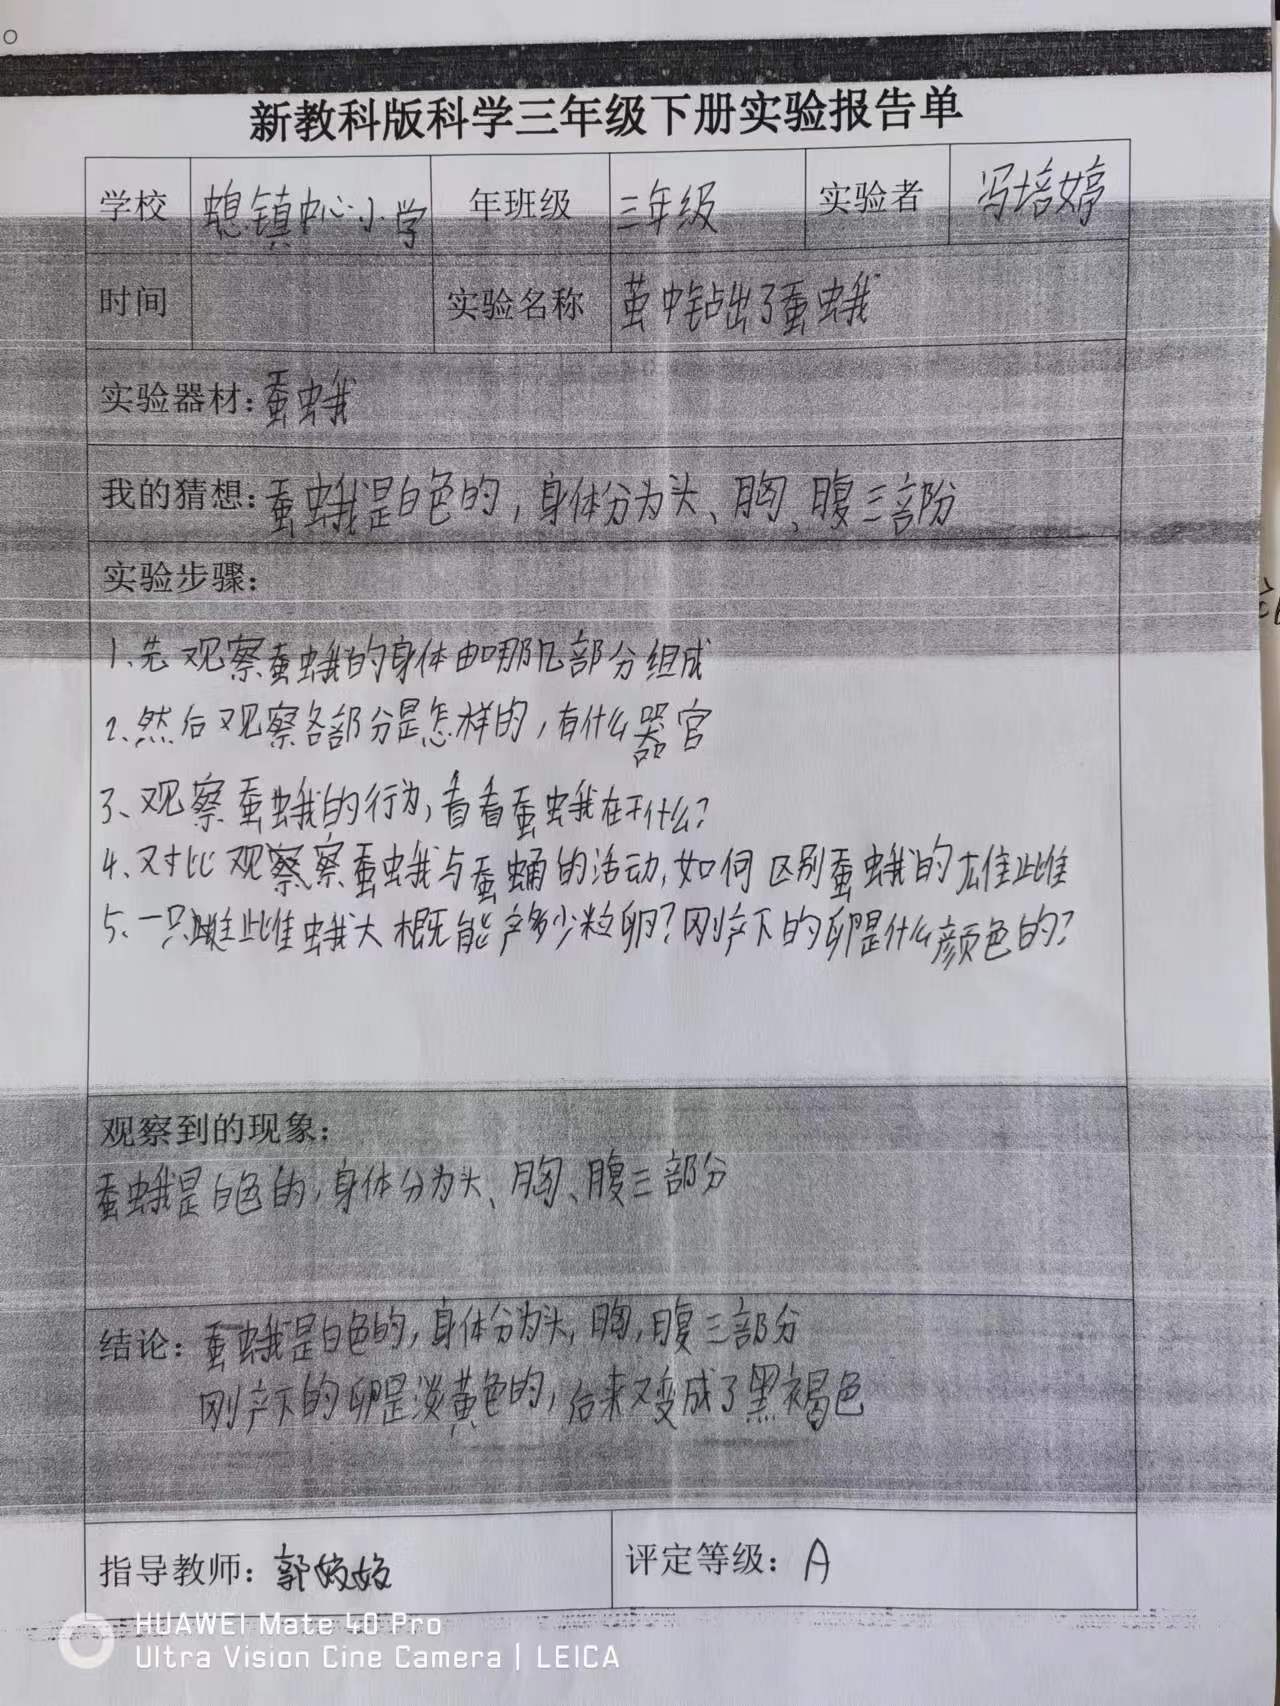 新教科版科学三年级下册实验报告单
学校 螅镇中心小学 年班级 三年级 实验者 冯培婷
时间 实验名称 茧中钻出了蚕蛾
实验器材：蚕蛾
我的猜想：蚕蛾是白色的，身体分为头、胸、腹三部份
实验步骤：
1、先观察蚕蛾的身体由哪几部分组成
2、然后观察各部分是怎样的，有什么器官
3、观察蚕蛾的行为，看看蚕蛾在干什么？
4、对比观察察蚕蛾与蚕蛹的活动，如何区别蚕蛾的雄雌
5、一只雌蛾大概能产多少粒卵？刚产下的卵是什么颜色的？
观察到的现象：
蚕蛾是白色的，身体分为头、胸、腹三部分
结论：蚕蛾是白色的，身体分为头，胸，腹三部分
刚产下的卵是淡黄色的，后来又变成了黑褐色
指导教师：郭姣姣 评定等级：A
HUAWEI Mate 40 Pro
Ultra Vision Cine Camera | LEICA